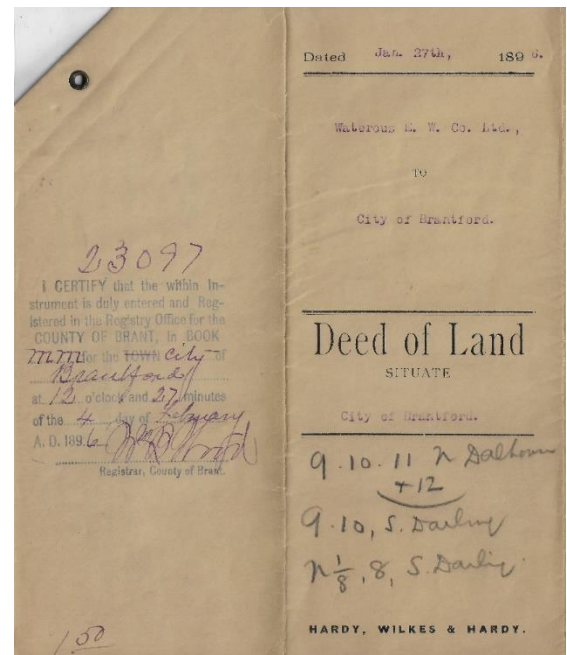 23097
I CERTIFY that the within In-
strument is duly entered and Reg-
istered in the Registry Office for the
COUNTY OF BRANT, in BOOK
mm for the TOWN City of
Brantford
at 12 o'clock and 27 minutes
of the 4 day of February
A. D. 1896
Registrar, County of Brant.
1.50
Dated Jan. 27th, 1896.
Waterous E. W. Co. Ltd.,
TO
City of Brantford.
Deed of Land
SITUATE
City of Brantford.
9.10.11 N Dalhousie
+12
9.10, S. Darling
N 1/8, 8, S. Darling.
HARDY, WILKES & HARDY.